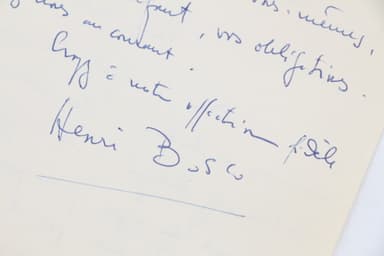 mêmes,
vos obligations.
au courant.
Croyez à notre affection fidèle
Henri Bosco